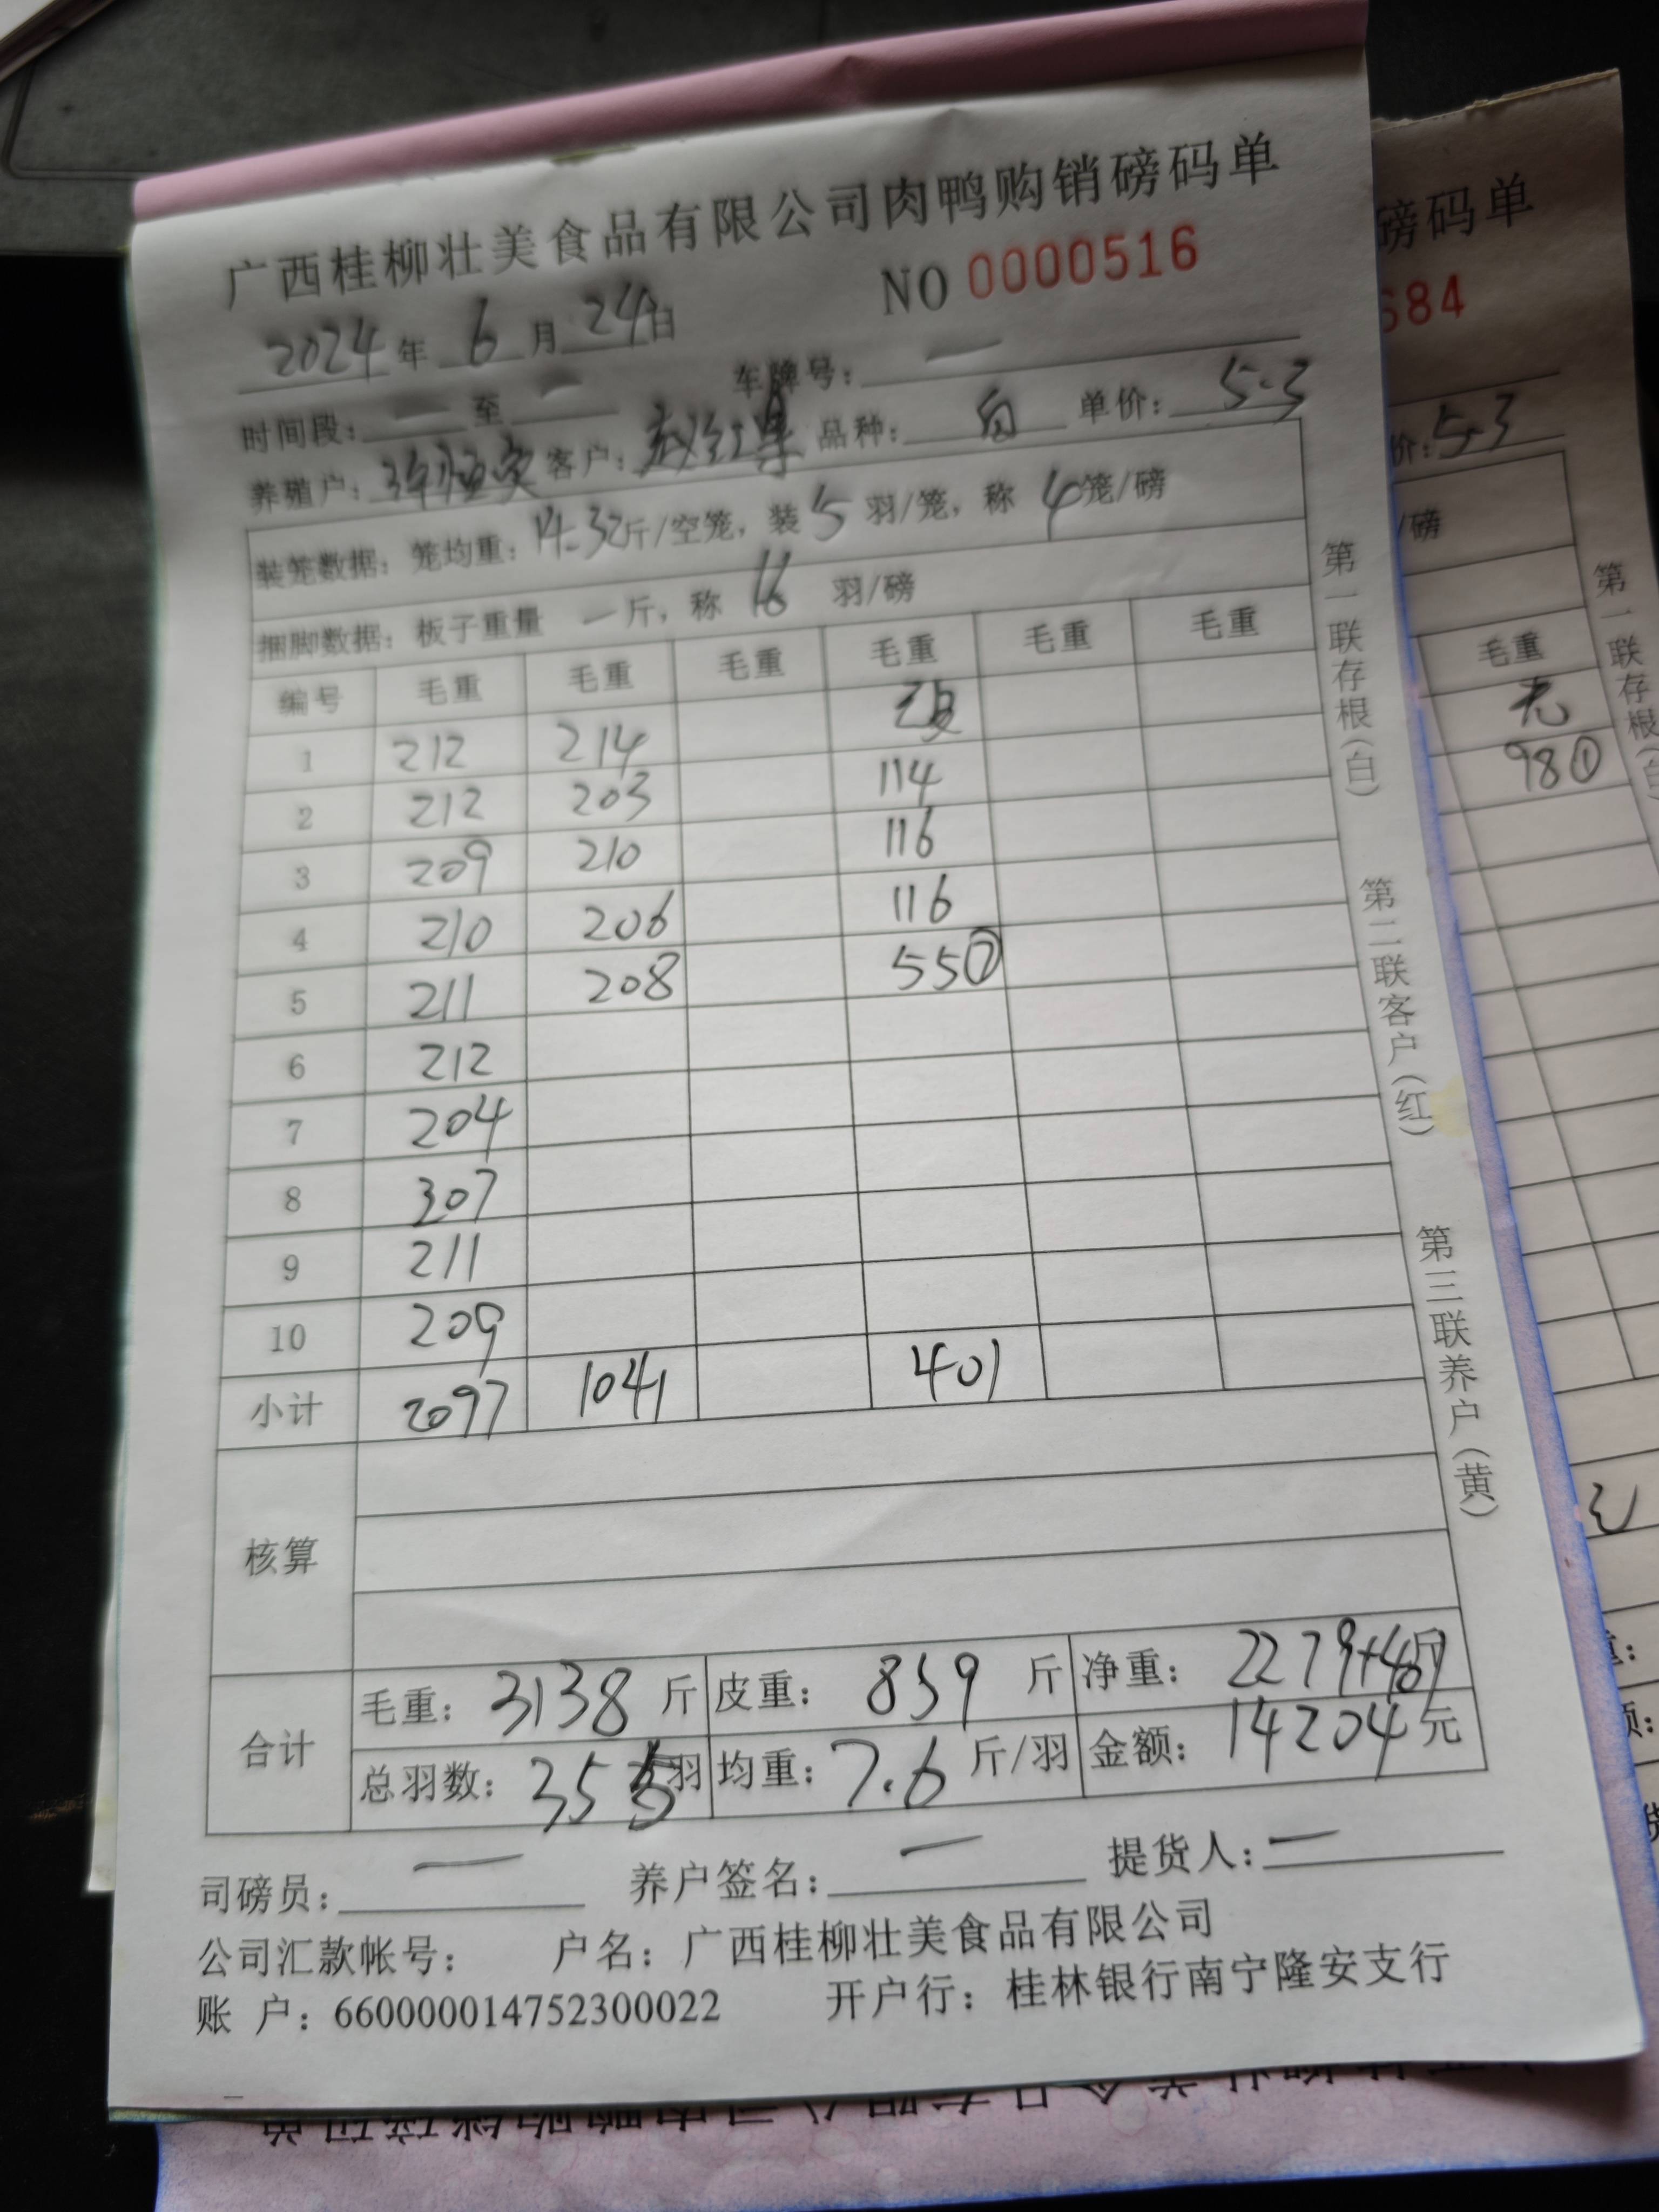 广西桂柳壮美食品有限公司肉鸭购销磅码单
2024年 6月 24日 NO 0000516
时间段: 一 至 一 车牌号: 一
养殖户: 客户: 赵红 品种: 白 单价: 5.3
装笼数据: 笼均重: 14.32斤/空笼, 装 5 羽/笼, 称 4 笼/磅
捆脚数据: 板子重量 一 斤, 称 16 羽/磅
编号 毛重 毛重 毛重 毛重 毛重 毛重
1 212 214
2 212 203 114
3 209 210 116
4 210 206 116
5 211 208 55⑦
6 212
7 204
8 207
9 211
10 209
小计 2097 1041 401
核算
合计 毛重: 3138 斤 皮重: 859 斤 净重: 2279+401斤
总羽数: 355羽 均重: 7.6 斤/羽 金额: 14204元
司磅员: 一 养户签名: 一 提货人: 一
公司汇款帐号: 户名: 广西桂柳壮美食品有限公司
账 户: 660000014752300022 开户行: 桂林银行南宁隆安支行
第一联存根(白) 第二联客户(红) 第三联养户(黄)
磅码单
684
价: 5.3
/磅
毛重
98①
第一联存根